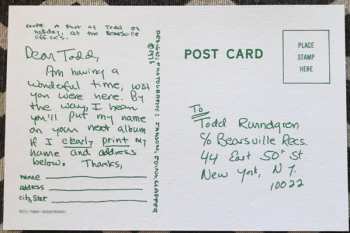 Dear Todd,
Am having a
wonderful time, wish
you were here. By
the way, I hear
you'll put my name
on your next album
if I clearly print my
name and address
below. Thanks,
name
address
city, State
POST CARD
PLACE
STAMP
HERE
To
Todd Rundgren
c/o Bearsville Recs.
44 East 50th St
New York, N.Y.
10022